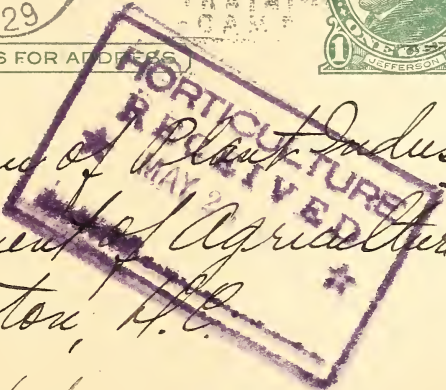 29
S FOR ADDRESS
1
JEFFERSON
HORTICULTURE
RECEIVED
MAY 2
of Plant Indus
ent of Agricultur
ton, D.C.